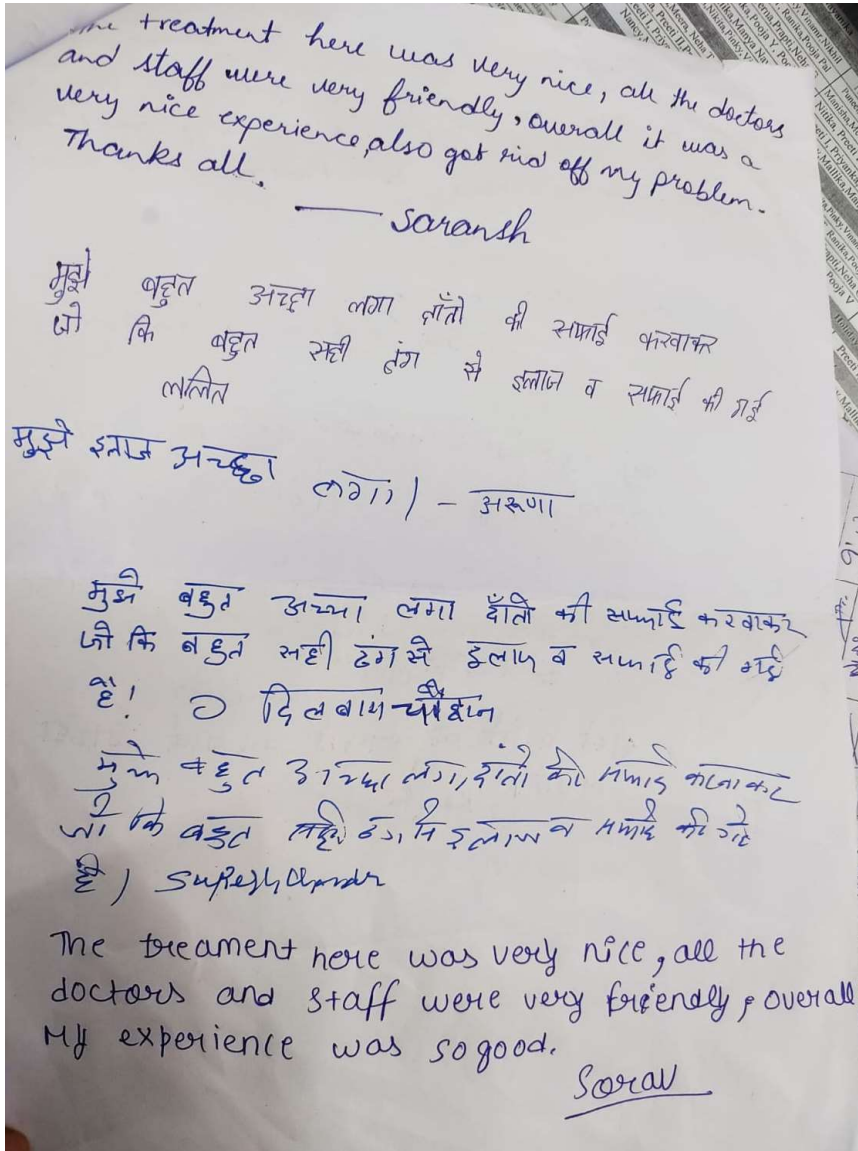 The treatment here was very nice, all the doctors
and staff were very friendly, overall it was a
very nice experience, also got rid off my problem.
Thanks all.
— Saransh
मुझे बहुत अच्छा लगा दाँतो की सफाई करवाकर
जो कि बहुत सही ढंग से इलाज व सफाई की गई
ललित
मुझे इलाज अच्छा लगा। - अरूणा
मुझे बहुत अच्छा लगा दाँतो की सफाई करवाकर
जो कि बहुत सही ढंग से इलाज व सफाई की गई
है! दिलबाग चौहान
मुझे बहुत अच्छा लगा दांतो की सफाई करवाकर
जो कि बहुत सही ढंग से इलाज व सफाई की गई
है।
The treament here was very nice, all the
doctors and staff were very friendly, overall
My experience was so good.
Sorav